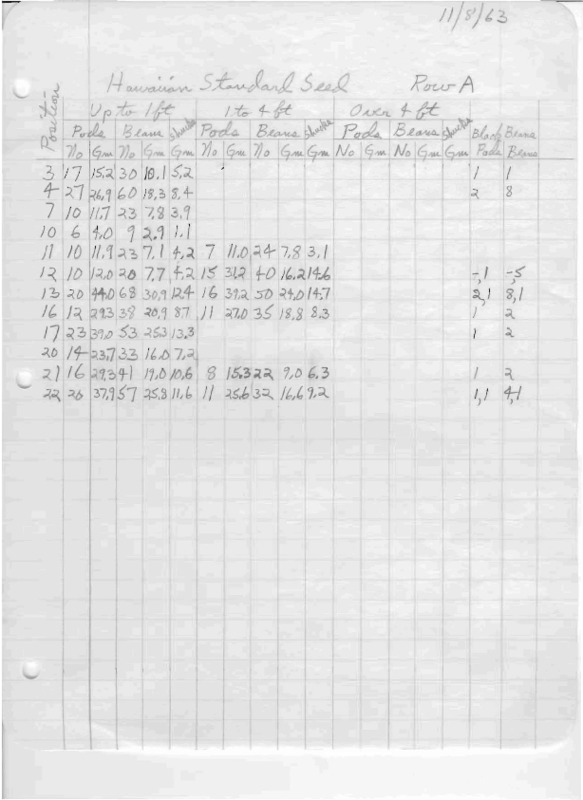 11/8/63
Hawaiian Standard Seed Row A
Position
Up to 1 ft 1 to 4 ft Over 4 ft
Pods Beans Shucks Pods Beans Shucks Pods Beans Shucks Black Beans
No Gm No Gm Gm No Gm No Gm Gm No Gm No Gm Gm Pods Beans
3 17 15.2 30 10.1 5.2 1 1
4 27 26.9 60 18.3 8.4 2 8
7 10 11.7 23 7.8 3.9
10 6 4.0 9 2.9 1.1
11 10 11.9 23 7.1 4.2 7 11.0 24 7.8 3.1
12 10 12.0 20 7.7 4.2 15 31.2 40 16.2 14.6 -,1 -,5
13 20 44.0 68 30.9 12.4 16 39.2 50 24.0 14.7 2,1 8,1
16 12 29.3 38 20.9 8.7 11 27.0 35 18.8 8.3 1 2
17 23 39.0 53 25.3 13.3 1 2
20 14 23.7 33 16.0 7.2
21 16 29.3 41 19.0 10.6 8 15.3 22 9.0 6.3 1 2
22 20 37.9 57 25.8 11.6 11 25.6 32 16.6 9.2 1,1 4,1